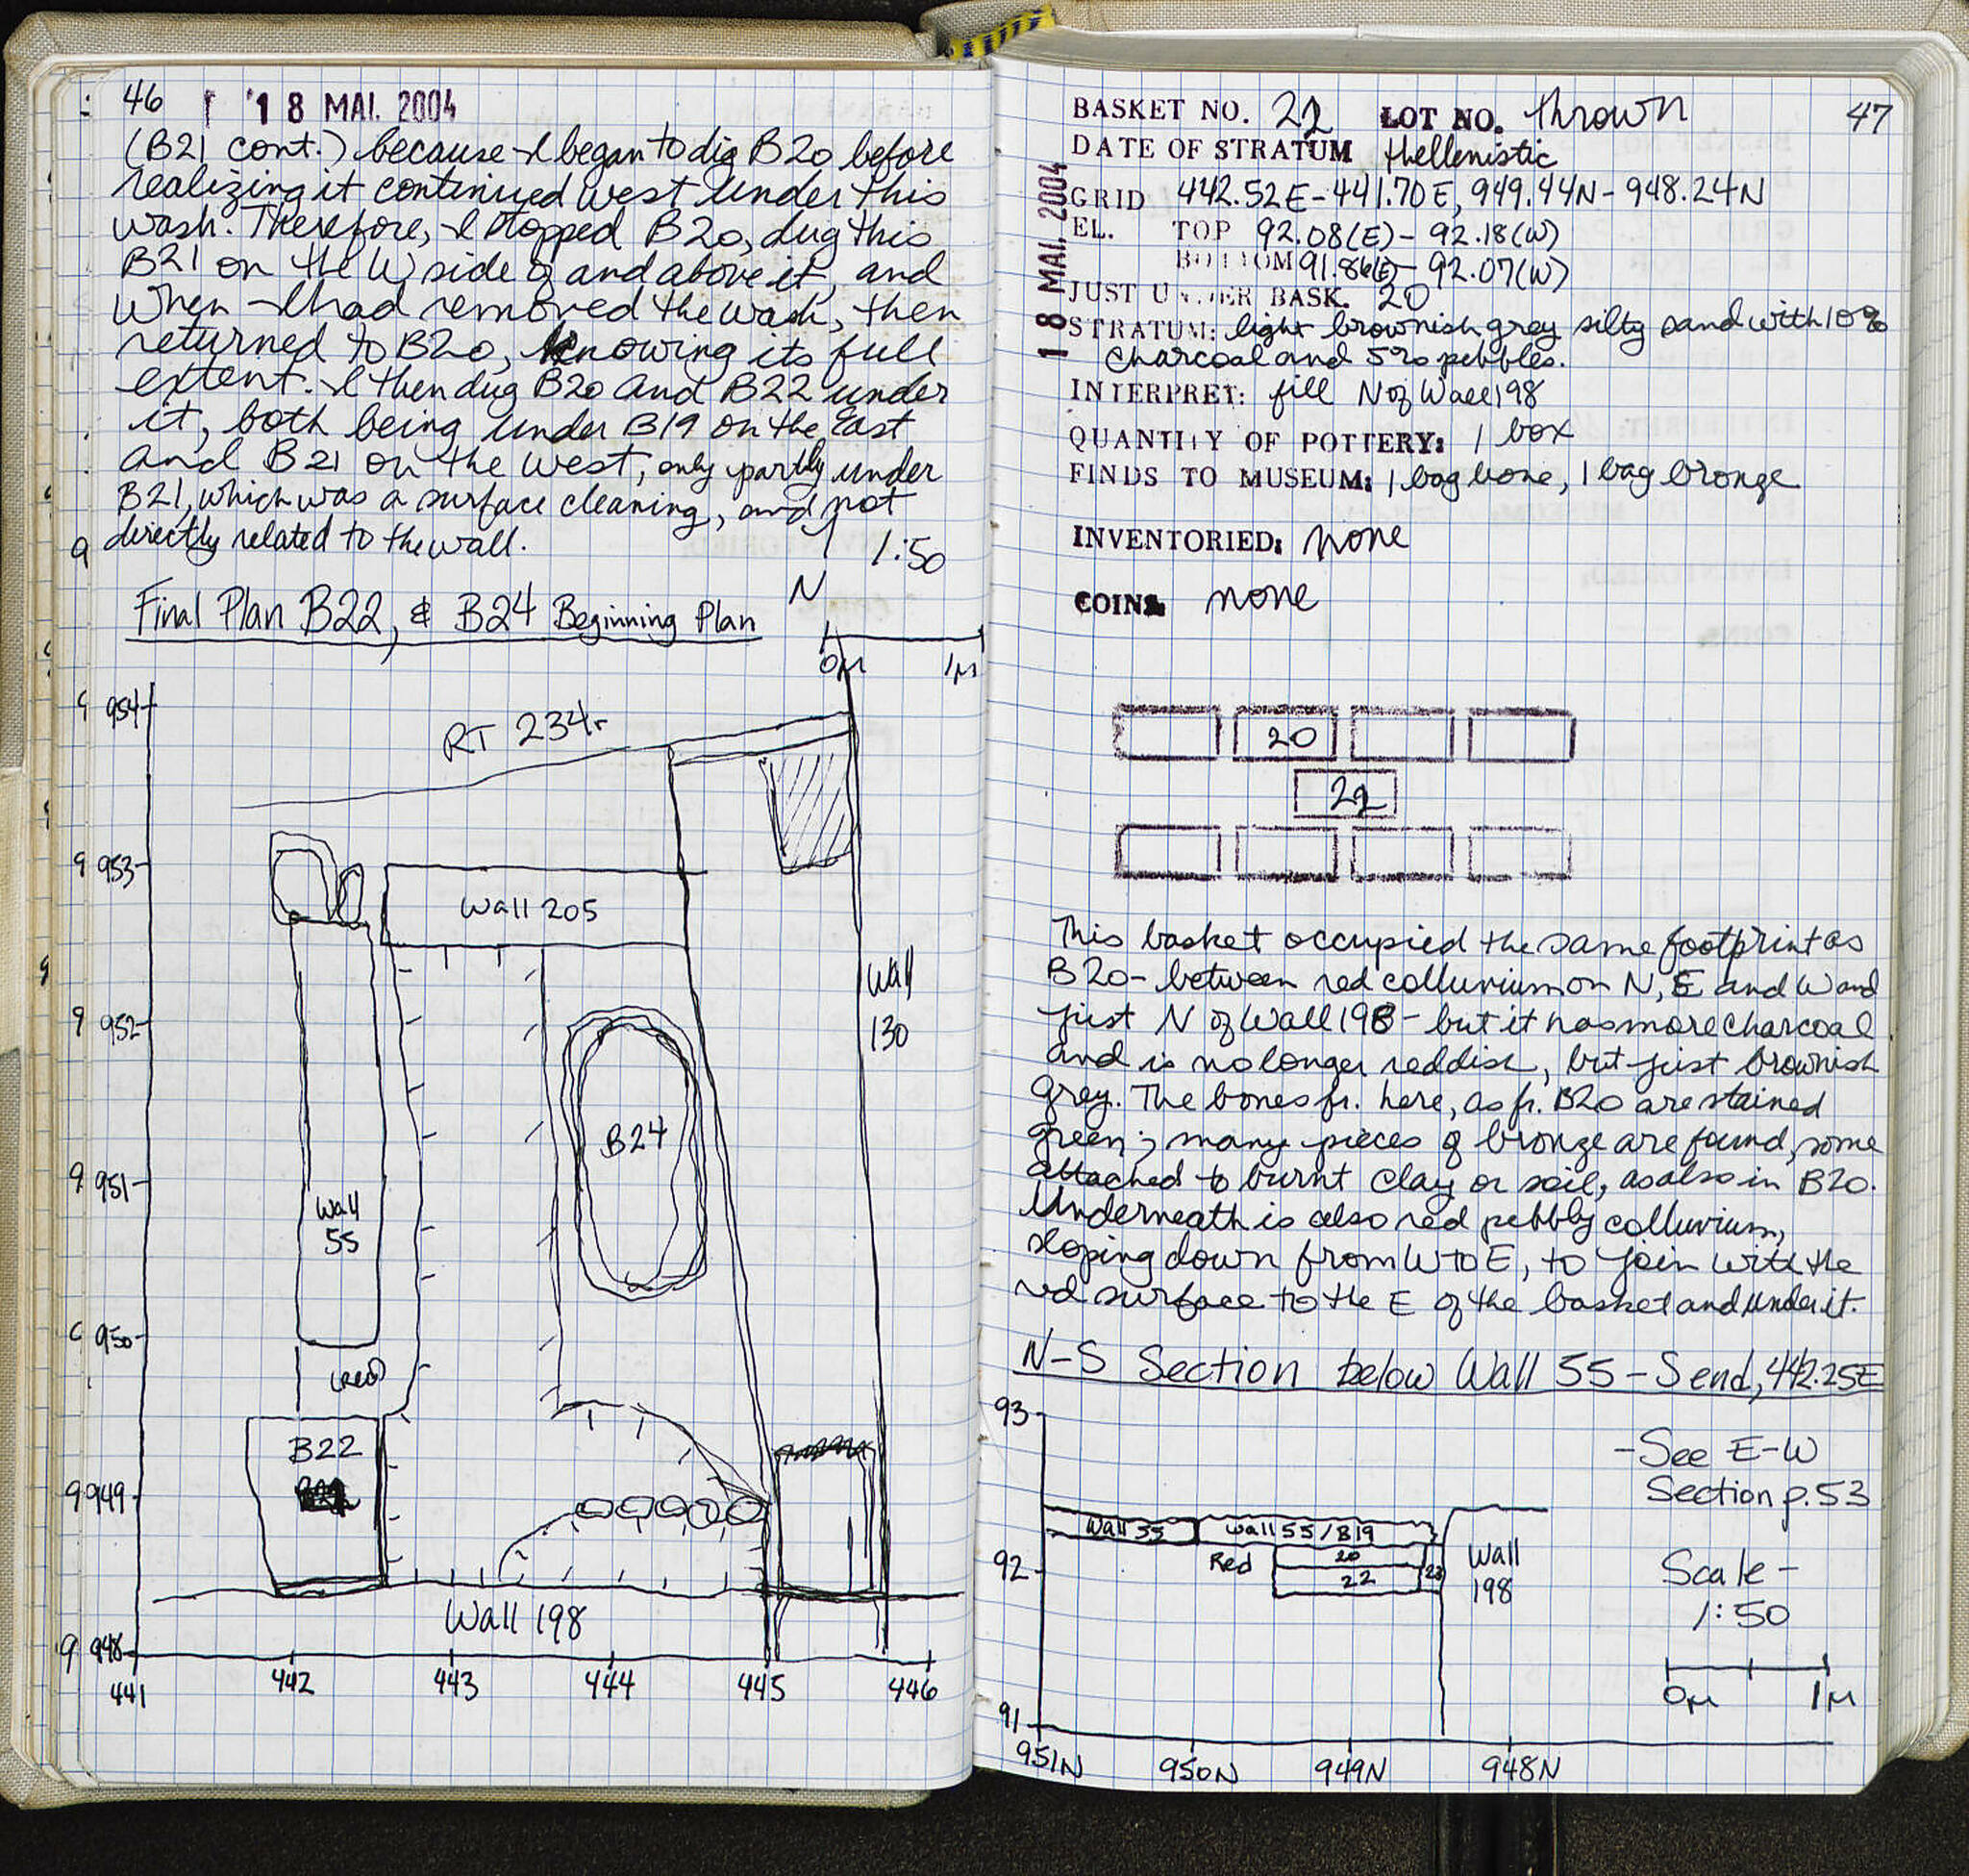 46 18 MAI. 2004
(B21 cont.) because I began to dig B20 before
realizing it continued west under this
wash. Therefore, I stopped B20, dug this
B21 on the W side of and above it, and
when I had removed the wash, then
returned to B20, knowing its full
extent. I then dug B20 and B22 under
it, both being under B19 on the East
and B21 on the west, only partly under
B21, which was a surface cleaning, and not
directly related to the wall.
1:50
N
Final Plan B22, & B24 Beginning Plan
0M 1M
954
RT 234
953
Wall 205
Wall
130
952
B24
951
Wall
55
950
(Red)
B22
949
Wall 198
948
441 442 443 444 445 446
47
18 MAI. 2004
BASKET NO. 22 LOT NO. thrown
DATE OF STRATUM Hellenistic
GRID 442.52E-441.70E, 949.44N-948.24N
EL. TOP 92.08(E)-92.18(W)
BOTTOM 91.86(E)-92.07(W)
JUST UNDER BASK. 20
STRATUM: light brownish grey silty sand with 10%
charcoal and 5% pebbles.
INTERPRET: fill N of Wall 198
QUANTITY OF POTTERY: 1 box
FINDS TO MUSEUM: 1 bag bone, 1 bag bronze
INVENTORIED: none
COINS none
20
22
This basket occupied the same footprint as
B20- between red colluvium on N, E and W and
just N of Wall 198 - but it has more charcoal
and is no longer reddish, but just brownish
grey. The bones fr. here, as fr. B20 are stained
green; many pieces of bronze are found, some
attached to burnt clay or soil, as also in B20.
Underneath is also red pebbly colluvium,
sloping down from W to E, to join with the
red surface to the E of the basket and under it.
N-S Section below Wall 55-S end, 442.25E
93
-See E-W
Section p.53
Wall 55 Wall 55/B19
Red 20
22 23
Wall
198
92
Scale-
1:50
0M 1M
91
951N 950N 949N 948N